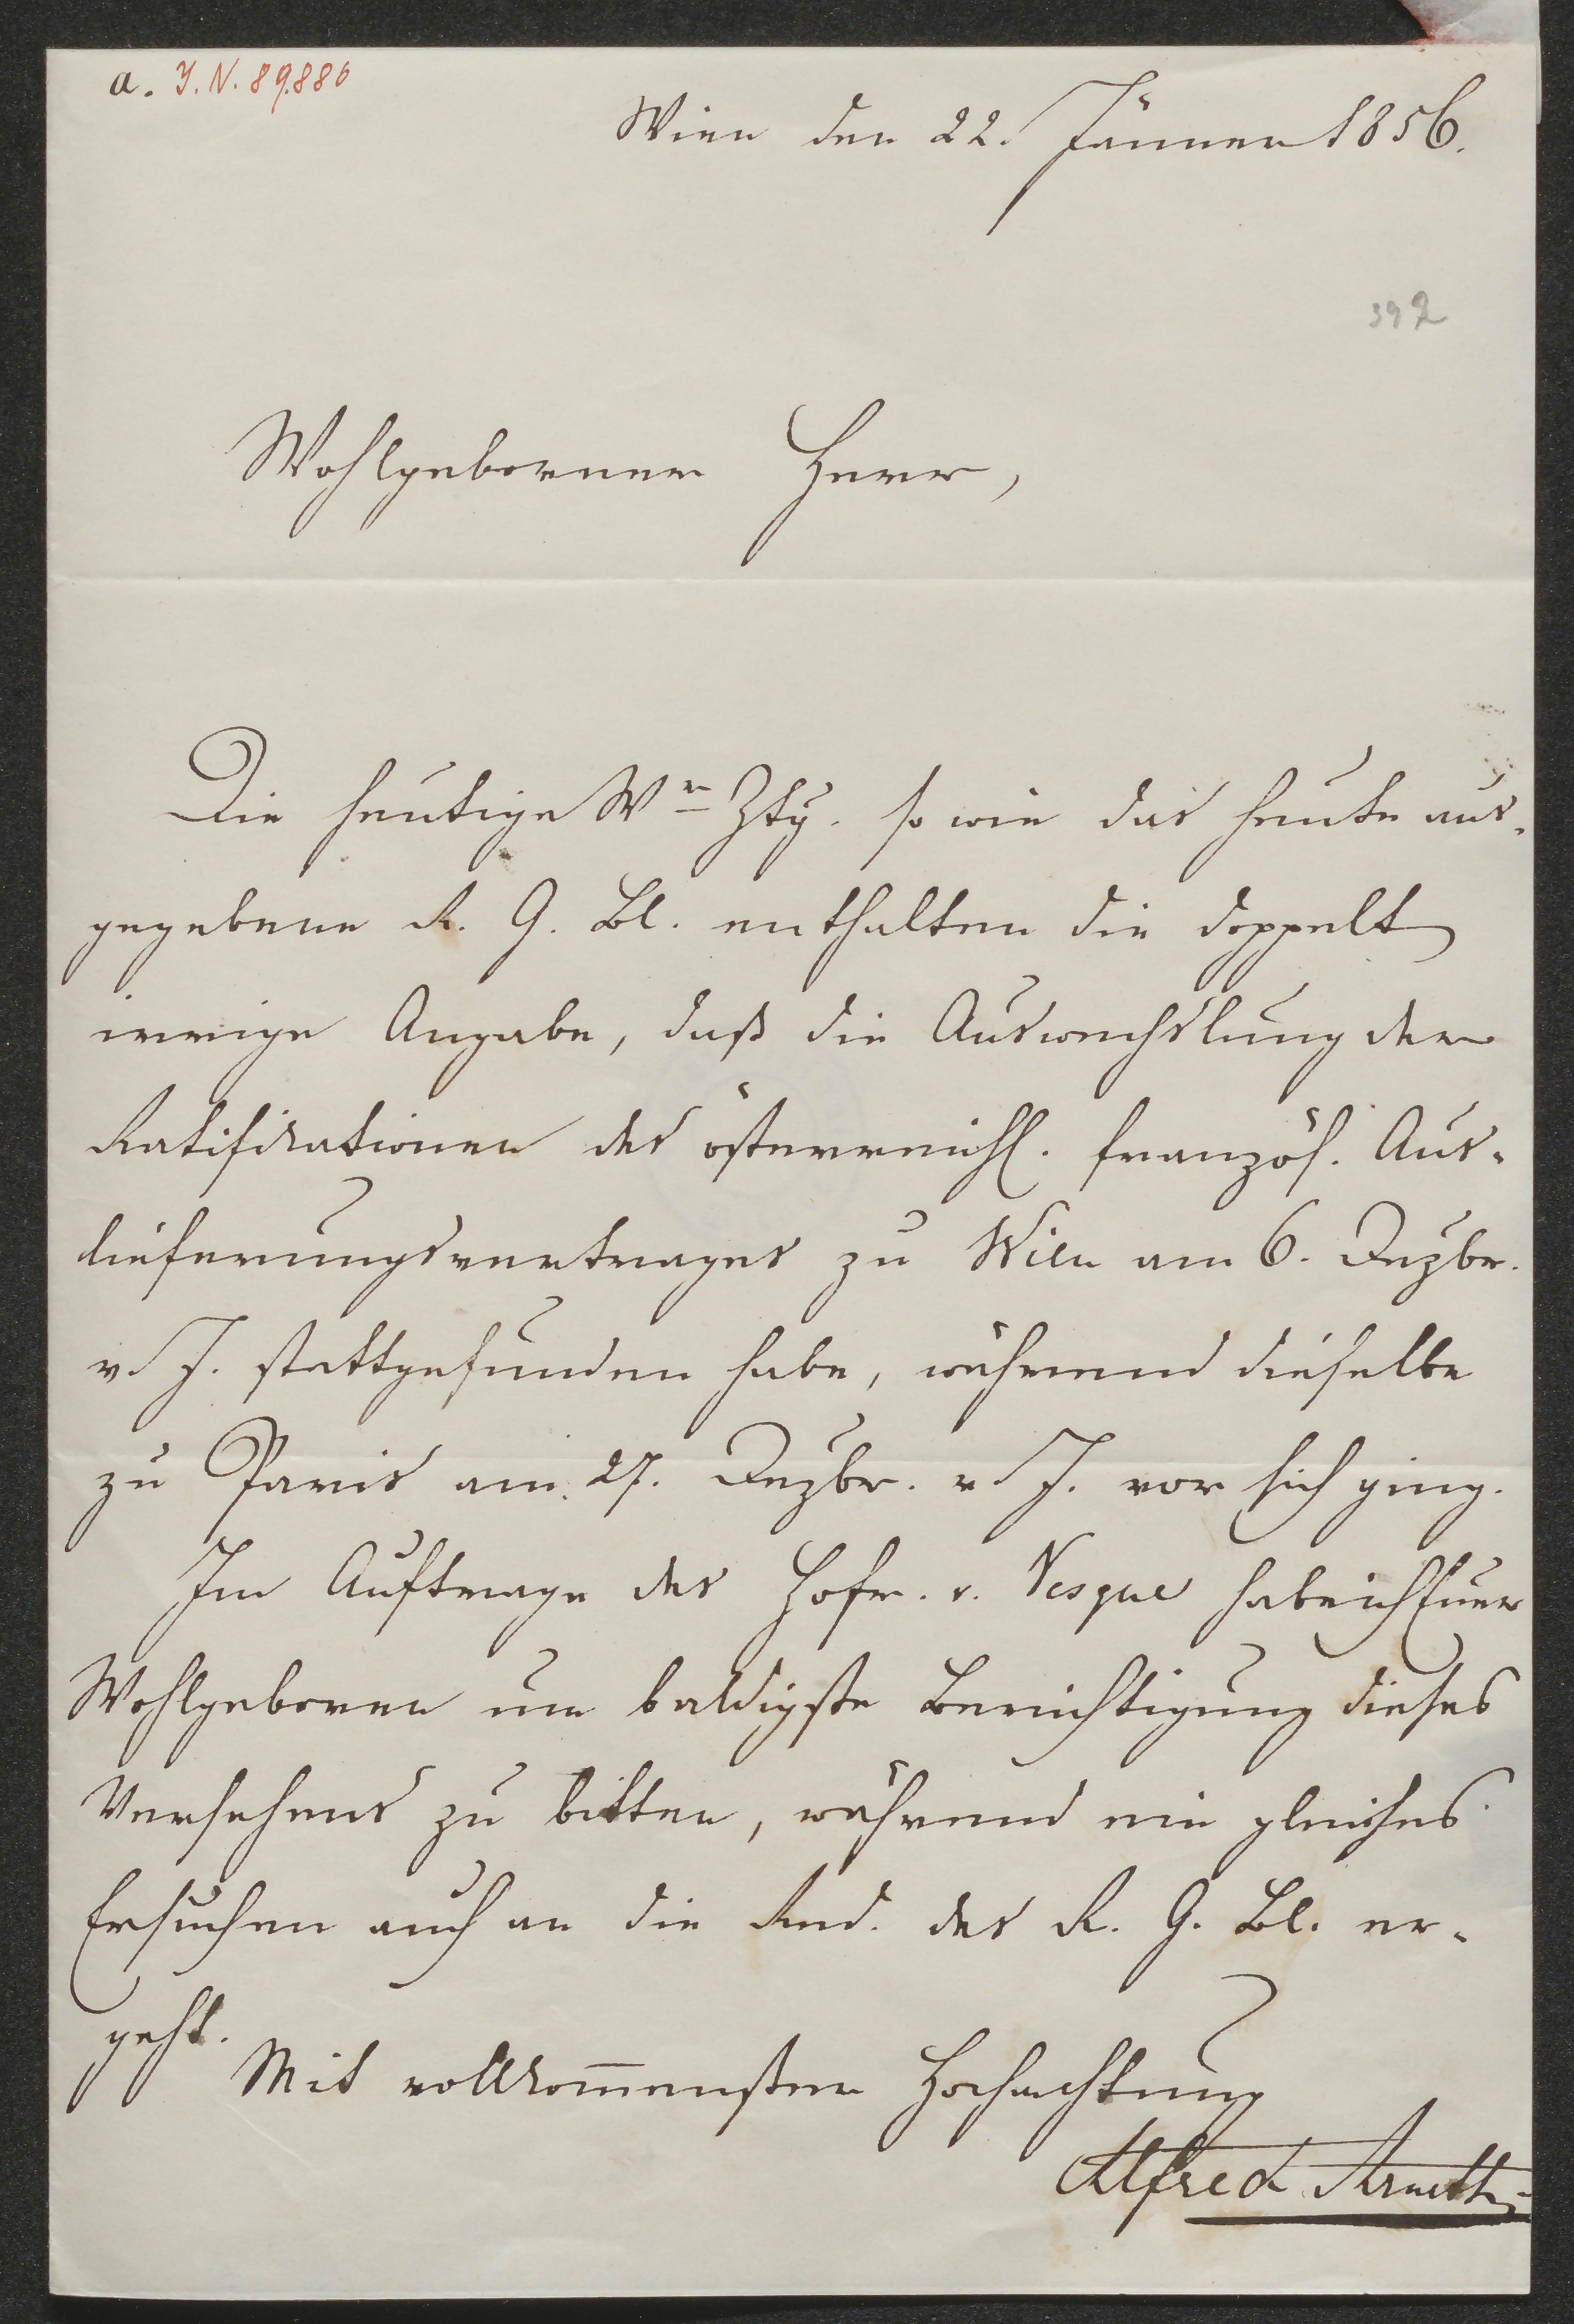 a. I. N. 89.886
Wien den 22. Jänner 1856.
392
Wohlgeborner Herr,
Die heutige Wr Ztg. so wie das heute aus-
gegebene R. G. Bl. enthalten die doppelt
irrige Angabe, daß die Auswechslung der
Ratifikationen des österreichl. französ. Aus-
lieferungsvertrages zu Wien am 6. Dezbr.
v J. stattgefunden habe, während dieselbe
zu Paris am 27. Dezbr. v J. vor sich ging.
Im Auftrage des Hofr. v. Vesque habe ich Euer
Wohlgeboren um baldigste Berichtigung dieses
Versehens zu bitten, während ein gleiches
Ersuchen auch an die Red. des R. G. Bl. er-
geht.
Mit vollkom̄enster Hochachtung
Alfred Arneth